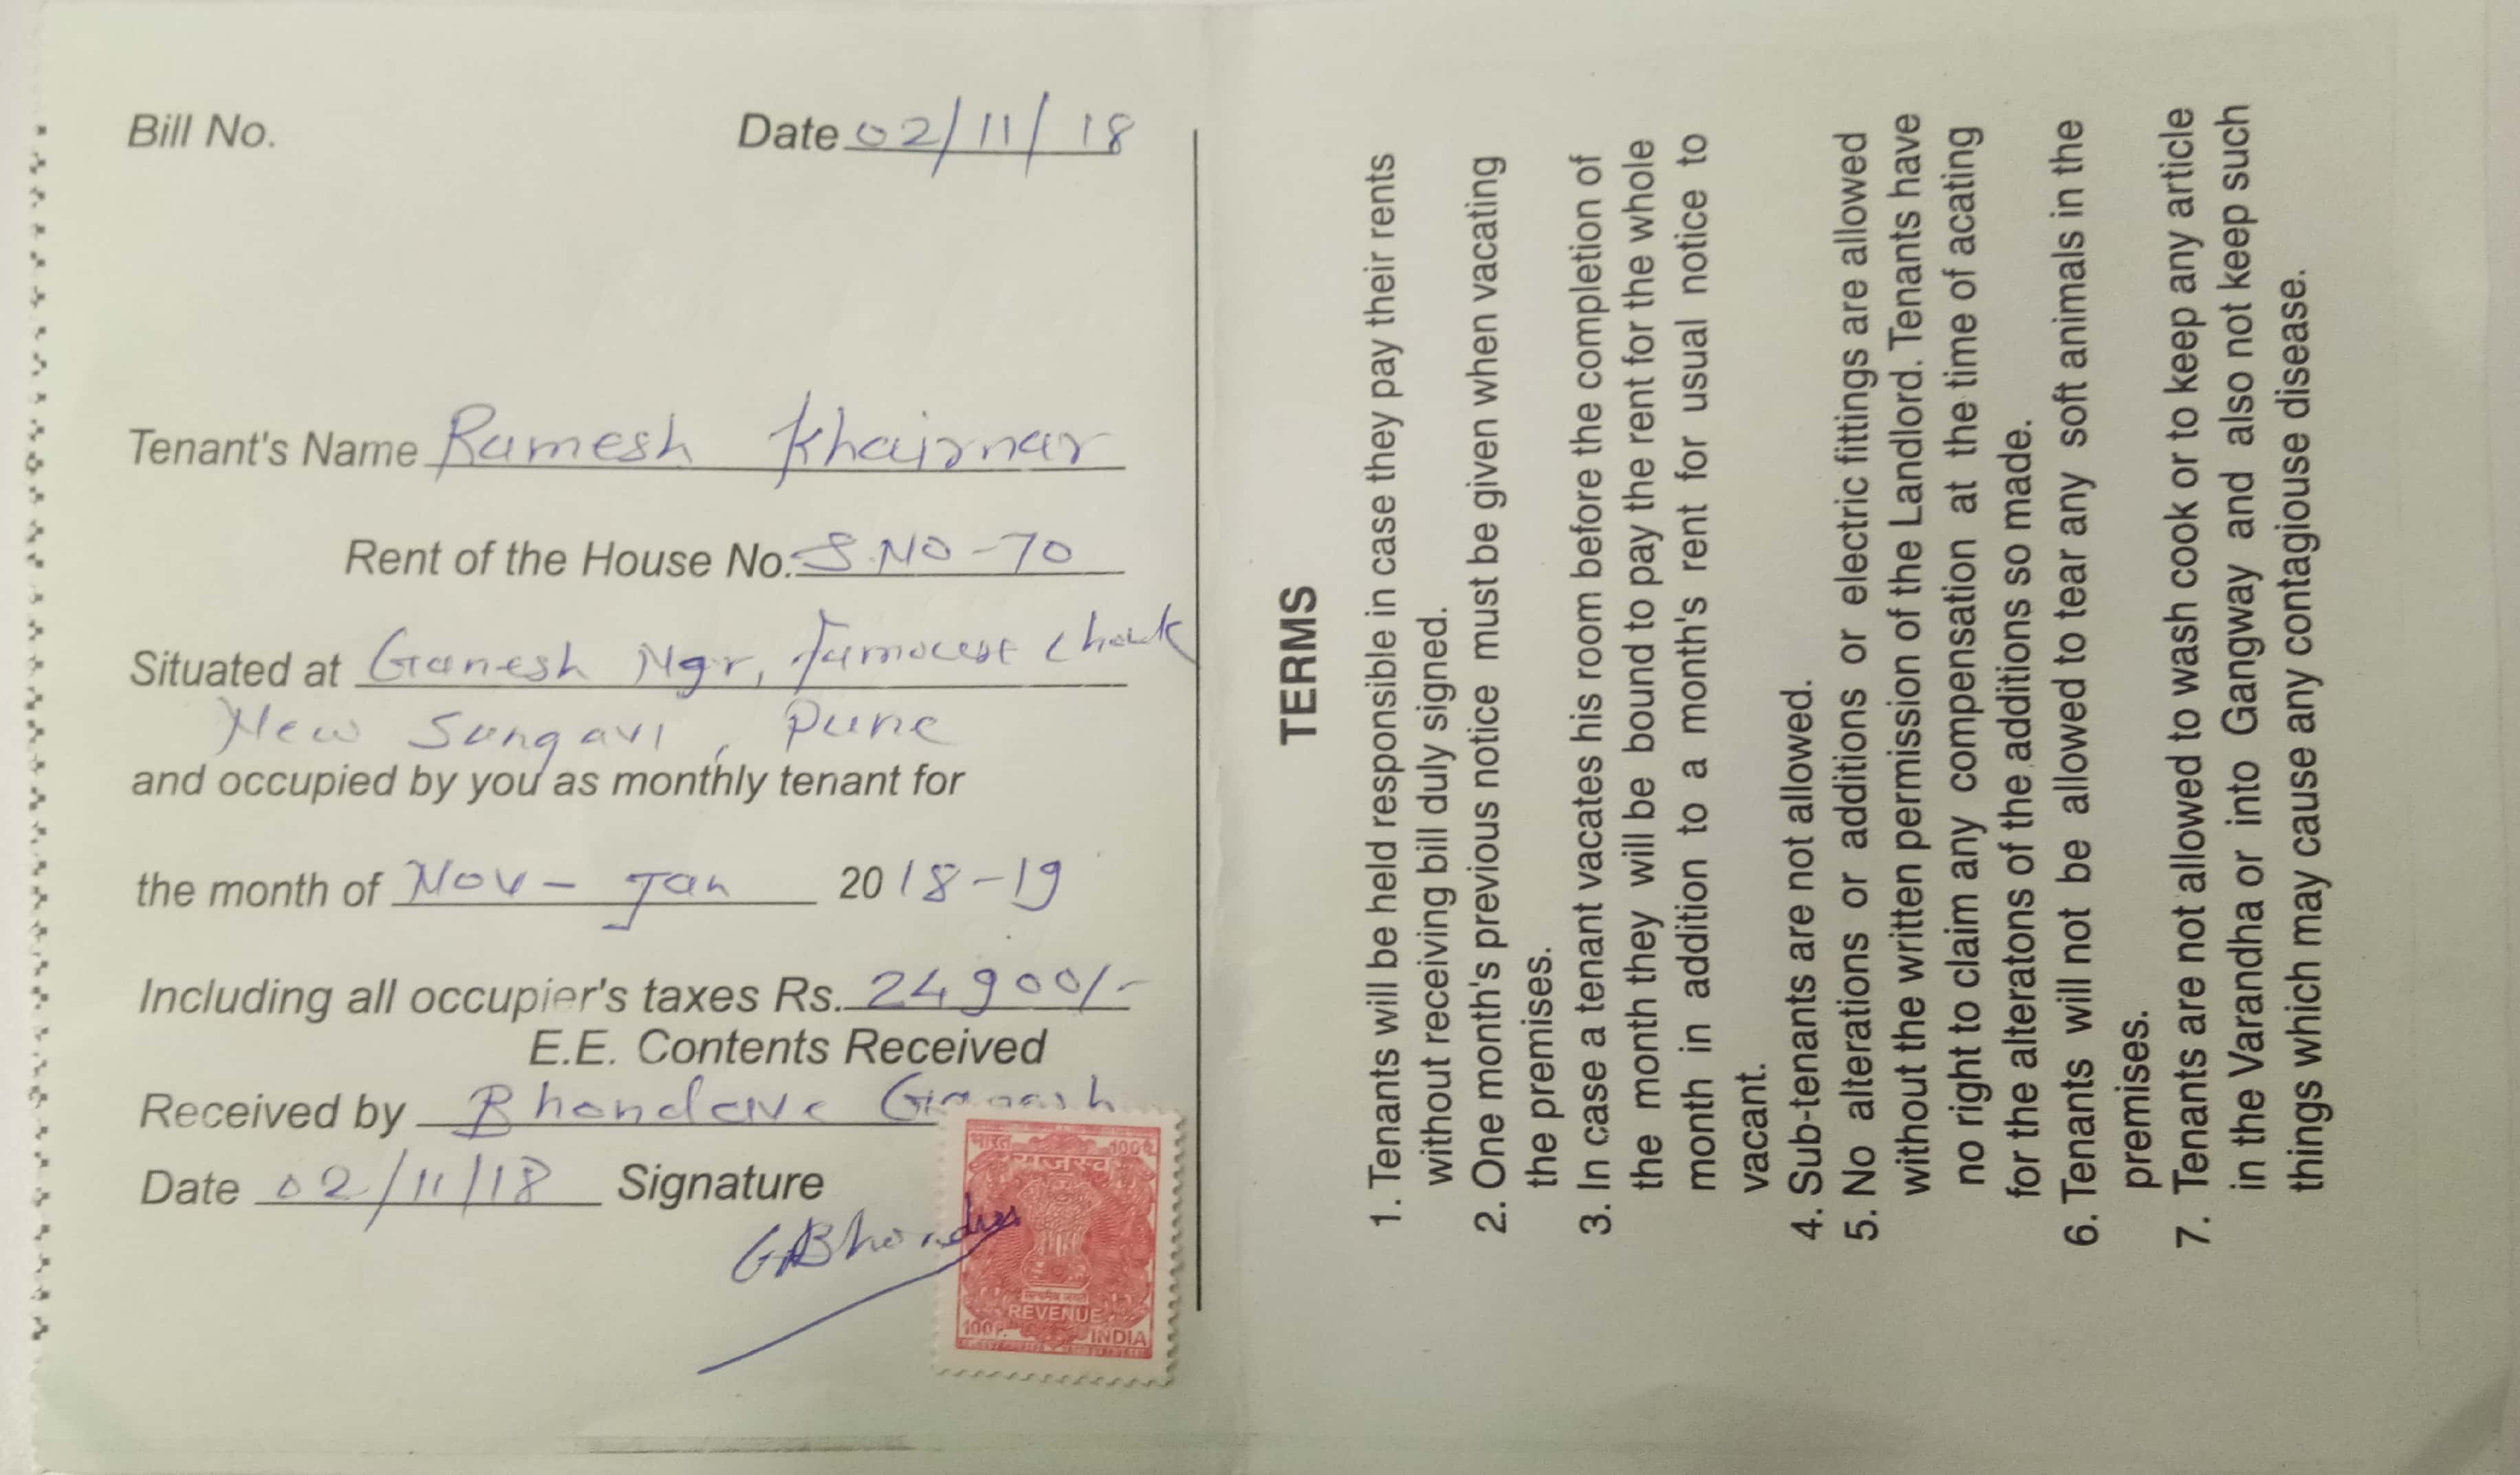 Bill No.
Date 02/11/18
Tenant's Name Ramesh Khairnar
Rent of the House No. S.NO-70
Situated at Ganesh Ngr, Famouest Chouk
New Sangavi, Pune
and occupied by you as monthly tenant for
the month of Nov - Jan 2018-19
Including all occupier's taxes Rs. 24900/-
E.E. Contents Received
Received by Bhondave Ganesh
Date 02/11/18 Signature
GBhondve
भारत 100पै.
राजस्व
सत्यमेव जयते
REVENUE
100P. INDIA
TERMS
1. Tenants will be held responsible in case they pay their rents
without receiving bill duly signed.
2. One month's previous notice must be given when vacating
the premises.
3. In case a tenant vacates his room before the completion of
the month they will be bound to pay the rent for the whole
month in addition to a month's rent for usual notice to
vacant.
4. Sub-tenants are not allowed.
5. No alterations or additions or electric fittings are allowed
without the written permission of the Landlord. Tenants have
no right to claim any compensation at the time of acating
for the alteratons of the additions so made.
6. Tenants will not be allowed to tear any soft animals in the
premises.
7. Tenants are not allowed to wash cook or to keep any article
in the Varandha or into Gangway and also not keep such
things which may cause any contagiouse disease.